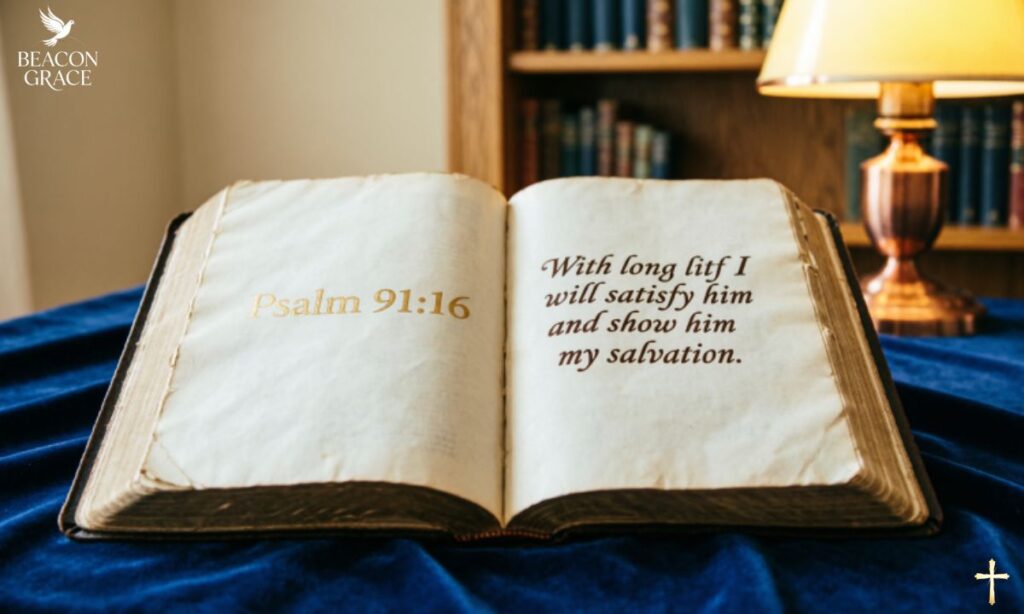 BEACON
GRACE
Psalm 91:16
With long litf I
will satisfy him
and show him
my salvation.